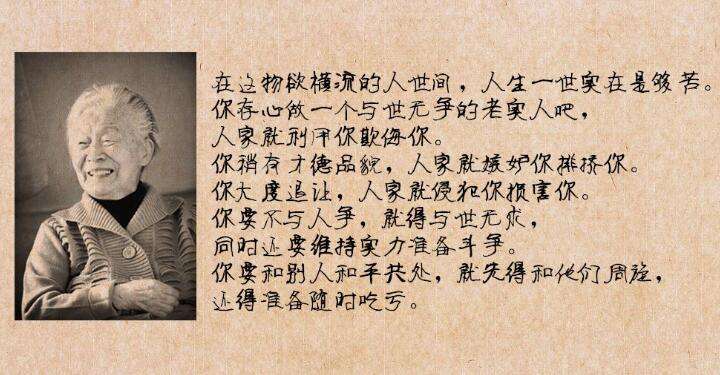 在这物欲横流的人世间，人生一世实在是够苦。
你存心做一个与世无争的老实人吧，
人家就利用你欺侮你。
你稍有才德品貌，人家就嫉妒你排挤你。
你大度退让，人家就侵犯你损害你。
你要不与人争，就得与世无求，
同时还要维持实力准备斗争。
你要和别人和平共处，就先得和他们周旋，
还得准备随时吃亏。